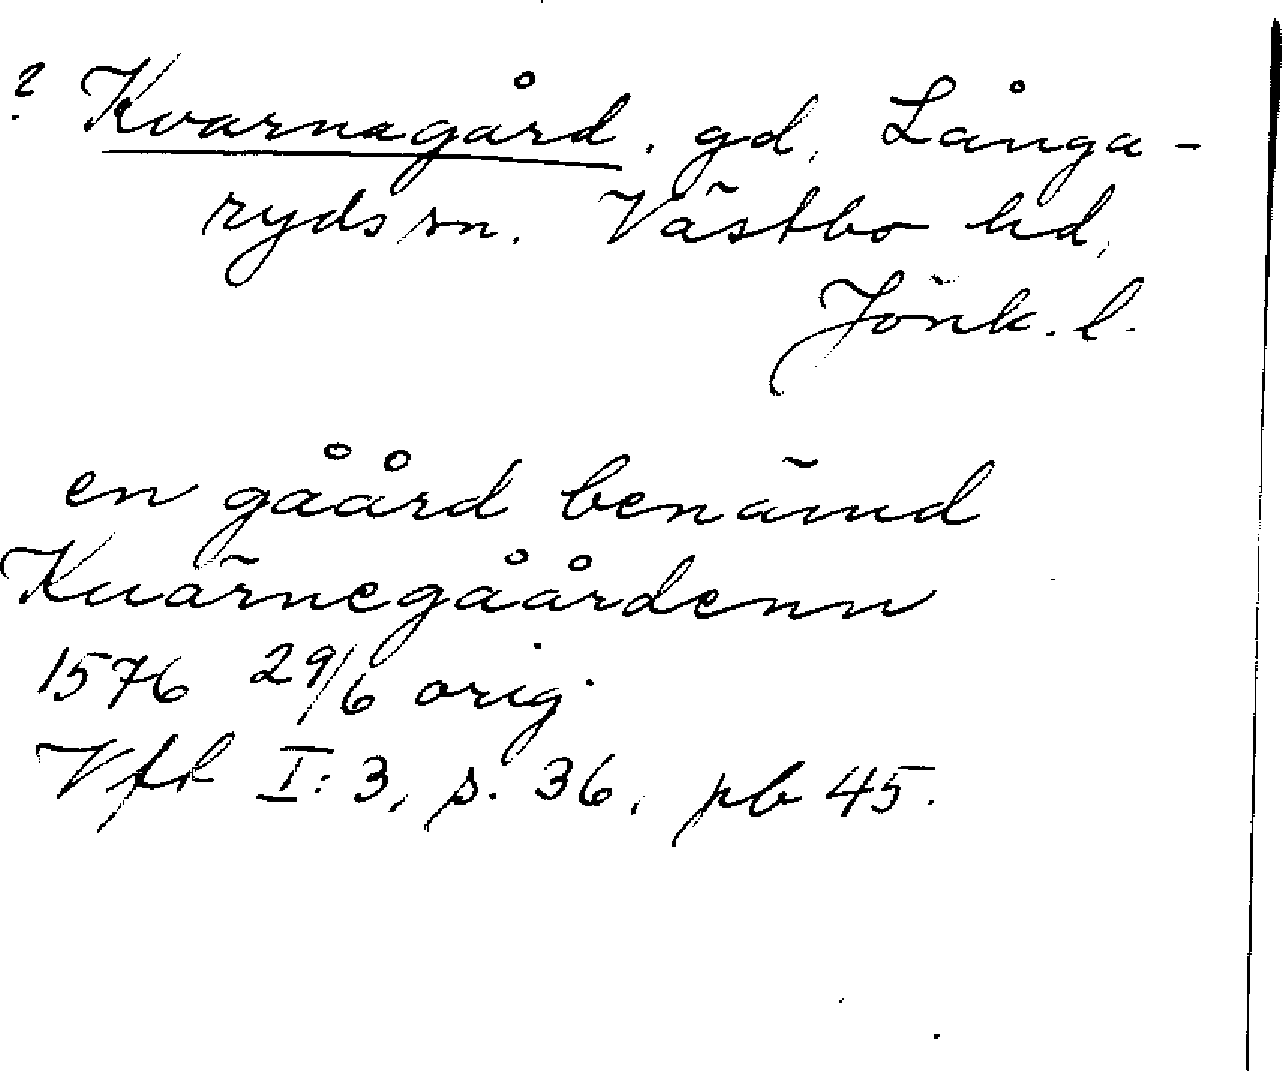 ? Kvarnagård. gd, Långa-
ryds sn. Västbo hd,
Jönk. l.
en gåård benämd
Kuärnegåårdenn
1576 29/6 orig.
Vfk I:3, s. 36, pb 45.